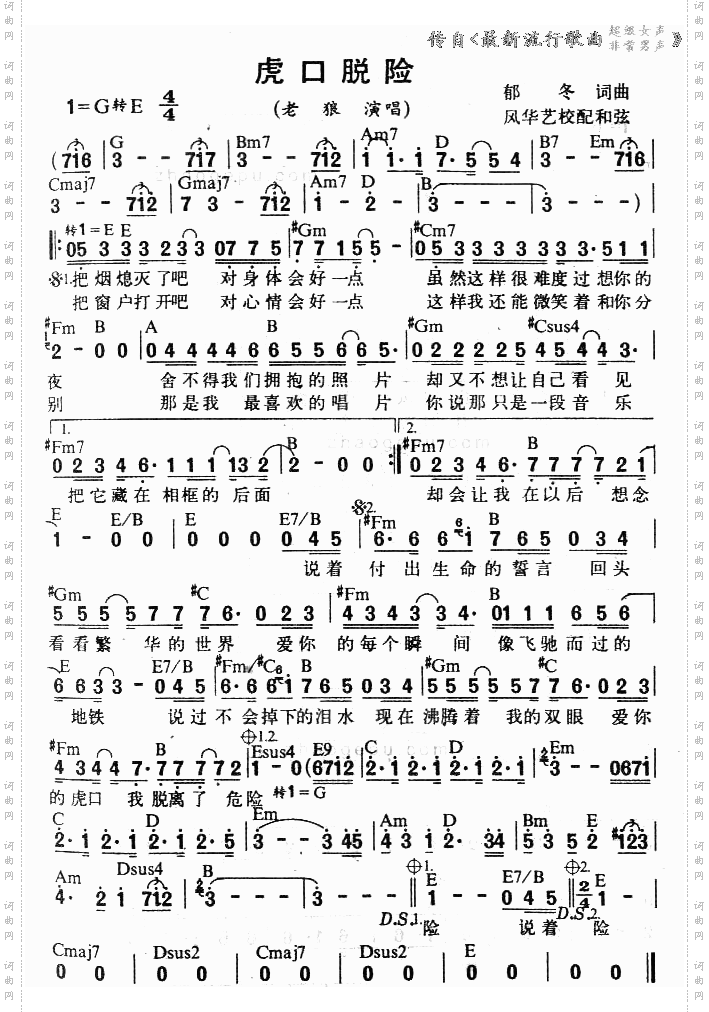 传自《最新流行歌曲 超级女声 非常男声》
虎口脱险
1=G转E 4/4
(老 狼 演唱)
郁 冬 词曲
风华艺校配和弦
G Bm7 Am7 D B7 Em
(716 3 - - 717 3 - - 712 1 1· 1 7· 5 5 4 3 - - 716
Cmaj7 Gmaj7 Am7 D B
3 - - 712 7 3 - 712 1 - 2 - 3 - - - 3 - - - )
转1=E E #Gm #Cm7
05 3 3 3 2 3 3 07 7 5 7 7 1 5 5 - 0 5 3 3 3 3 3 3 3· 5 1 1
1.把 烟 熄 灭 了 吧 对 身 体 会 好 一 点 虽 然 这 样 很 难 度 过 想 你 的
把 窗 户 打 开 吧 对 心 情 会 好 一 点 这 样 我 还 能 微 笑 着 和 你 分
#Fm B A B #Gm #Csus4
2 - 0 0 0 4 4 4 4 6 6 5 5 6 6 5· 0 2 2 2 2 5 4 5 4 4 3·
夜 舍 不 得 我 们 拥 抱 的 照 片 却 又 不 想 让 自 己 看 见
别 那 是 我 最 喜 欢 的 唱 片 你 说 那 只 是 一 段 音 乐
1. 2.
#Fm7 B #Fm7 B
0 2 3 4 6· 1 1 1 13 2 2 - 0 0 0 2 3 4 6· 7 7 7 7 2 1
把 它 藏 在 相 框 的 后 面 却 会 让 我 在 以 后 想 念
E E/B E E7/B 2. #Fm B
1 - 0 0 0 0 0 4 5 6· 6 6 1 7 6 5 0 3 4
说 着 付 出 生 命 的 誓 言 回 头
#Gm #C #Fm B
5 5 5 5 7 7 7 6· 0 2 3 4 3 4 3 3 4· 01 1 1 6 5 6
看 看 繁 华 的 世 界 爱 你 的 每 个 瞬 间 像 飞 驰 而 过 的
E E7/B #Fm/#C B #Gm #C
6 6 3 3 - 0 4 5 6· 6 6 1 7 6 5 0 3 4 5 5 5 5 5 7 7 6· 0 2 3
地 铁 说 过 不 会 掉 下 的 泪 水 现 在 沸 腾 着 我 的 双 眼 爱 你
#Fm B 1.2. Esus4 E9 C D Em
4 3 4 4 7· 7 7 7 7 2 1 - 0 (6712 2· 1 2· 1 2· 1 2· 1 2/4 3 - - 0671
的 虎 口 我 脱 离 了 危 险 转1=G
C D Em Am D Bm E
2· 1 2· 1 2· 1 2· 5 3 - - 3 45 4 3 1 2· 34 5 3 5 2 #123
Am Dsus4 B 1. E E7/B 2. E
4· 2 1 712 2/4 3 - - - 3 - - - 1 - - 0 4 5 2/4 1 -
D.S.1. 险 说 着 D.S.2. 险
Cmaj7 Dsus2 Cmaj7 Dsus2 E
0 0 0 0 0 0 0 0 0 0
词曲网